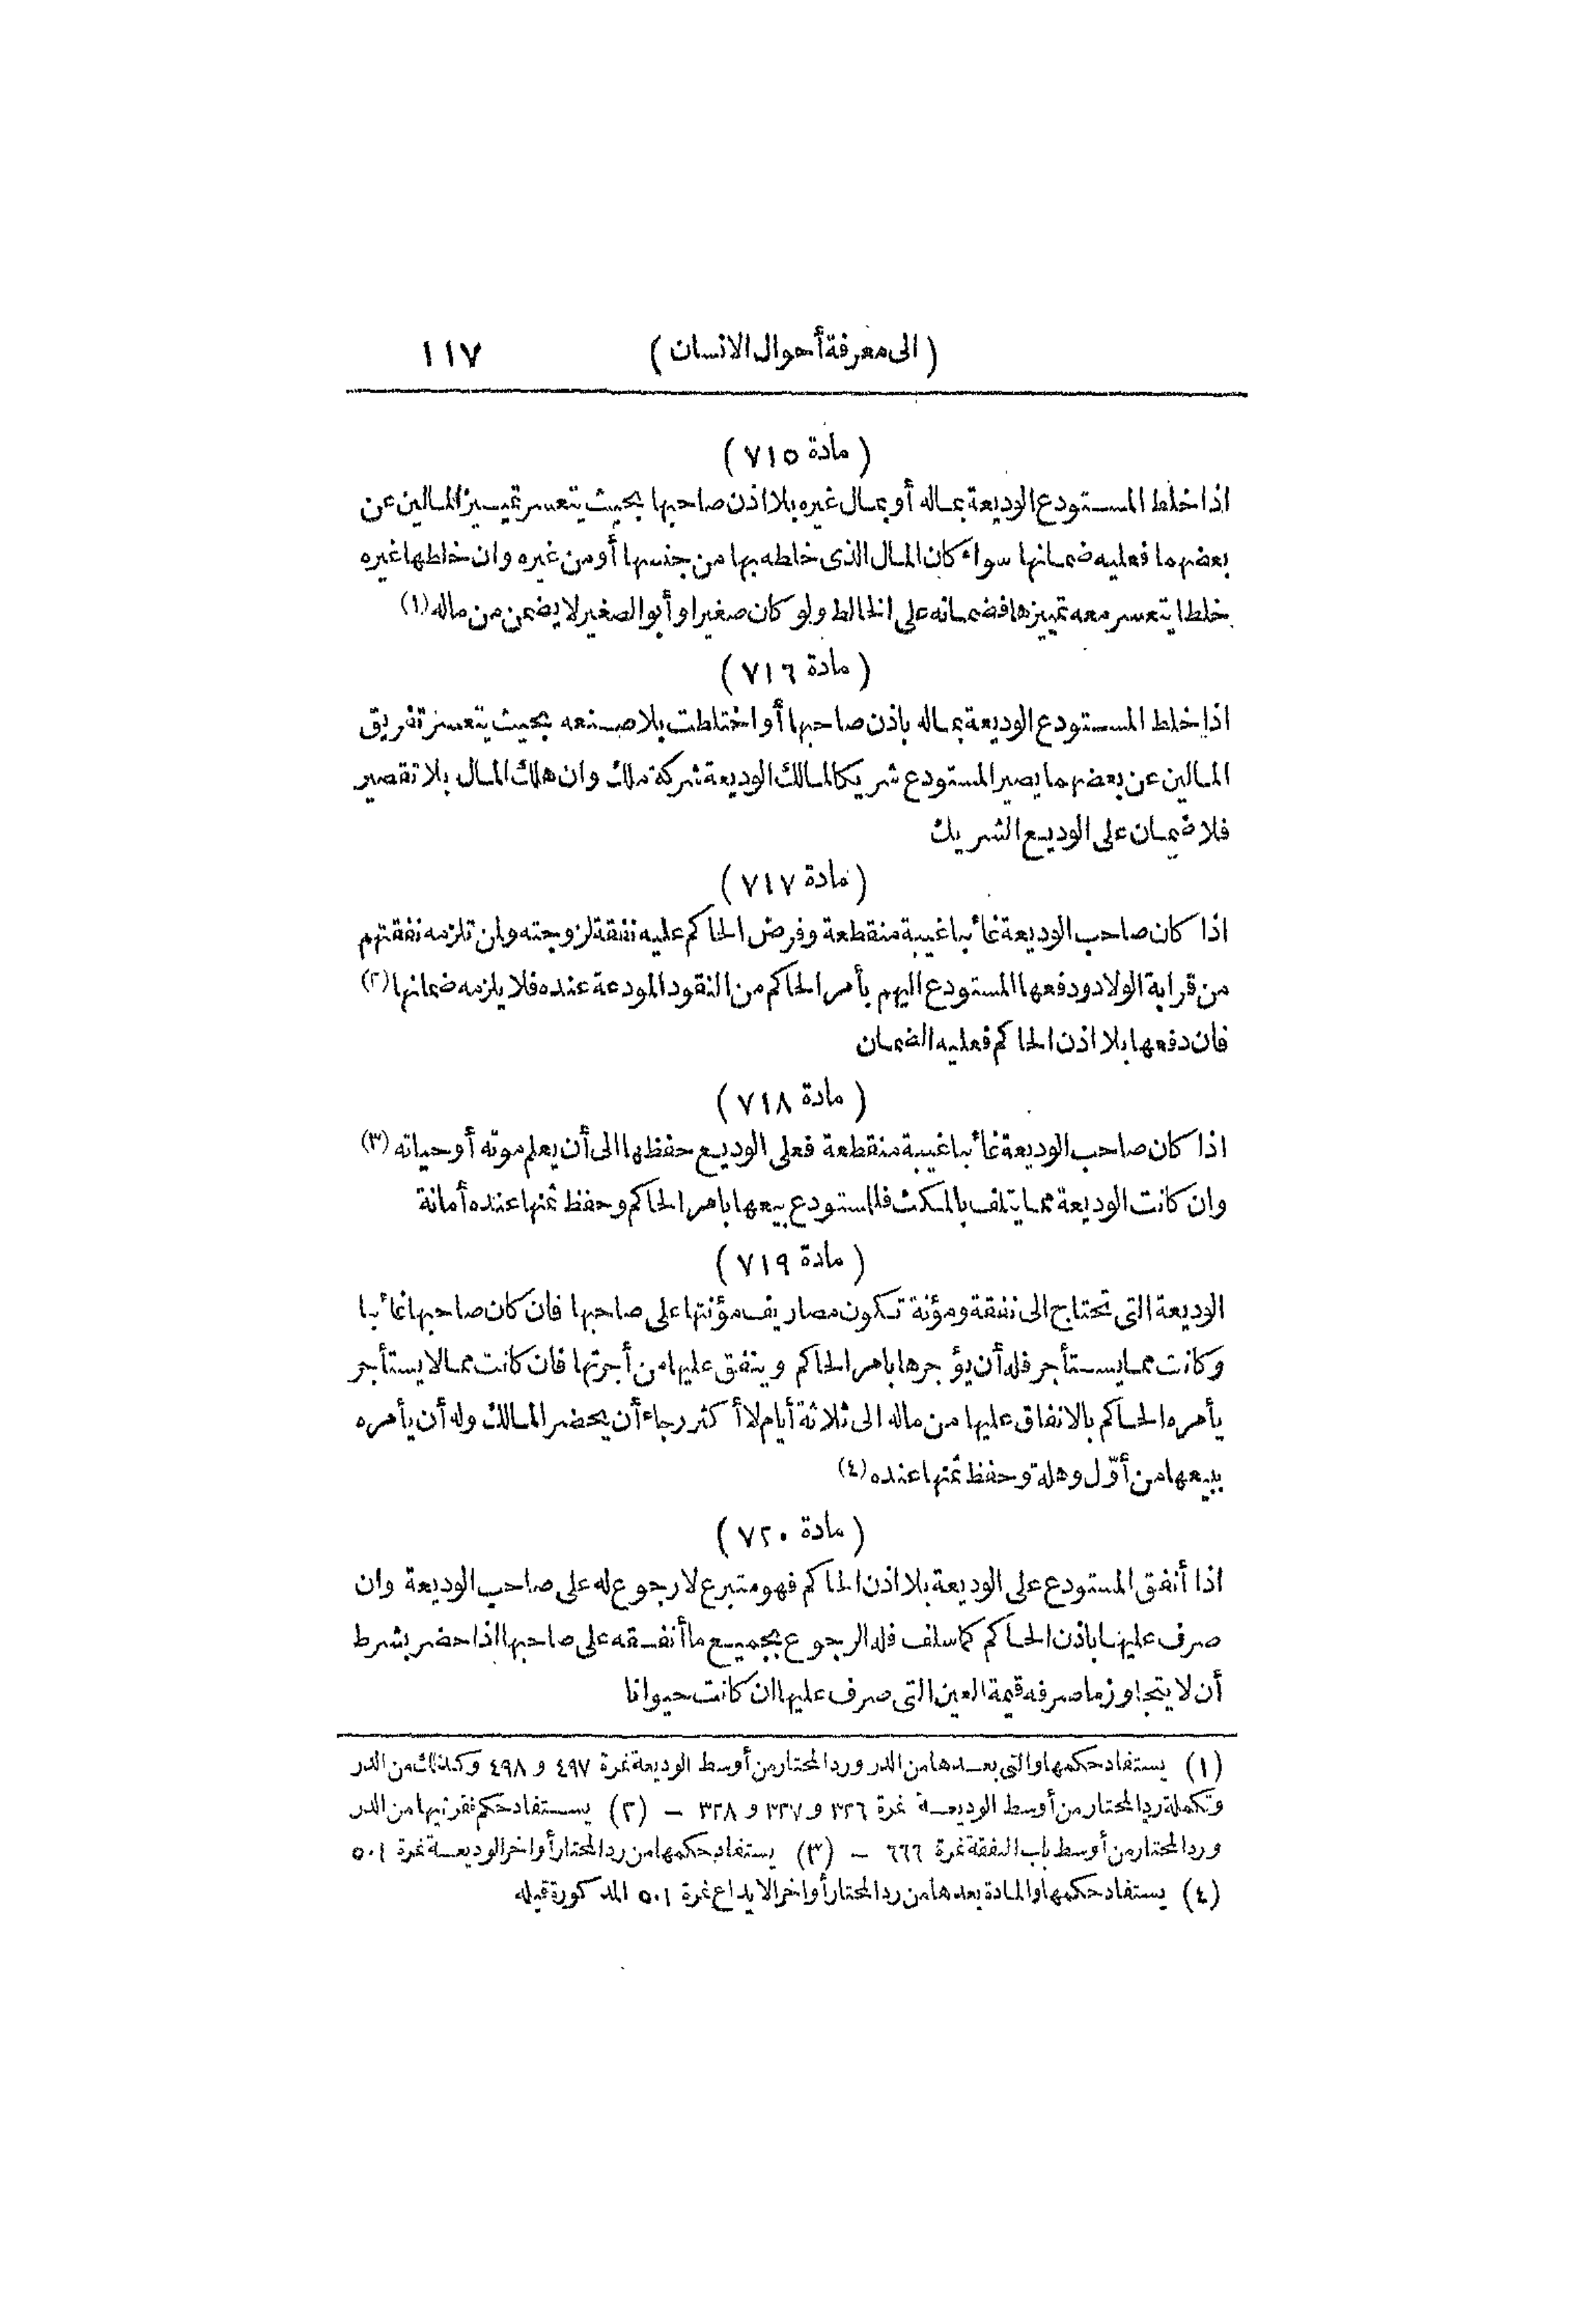 ( الى معرفة أحوال الانسان ) ١١٧
( مادة ٧١٥ )
اذا خلط المستودع الوديعة بماله أو بمال غيره بلا اذن صاحبها بحيث يتعسر تمييز المالين عن
بعضهما فعليه ضمانها سواء كان المال الذى خلطه بها من جنسها أو من غيره وان خلطها غيره
خلطا يتعسر معه تمييزها فضمانه على الخالط ولو كان صغيرا وأبو الصغير لا يضمن من ماله (١)
( مادة ٧١٦ )
اذا خلط المستودع الوديعة بماله باذن صاحبها أو اختلطت بلا صنعه بحيث يتعسر تفريق
المالين عن بعضهما يصير المستودع شريكا لمالك الوديعة شركة ملك وان هلك المال بلا تقصير
فلا ضمان على الوديع الشريك
( مادة ٧١٧ )
اذا كان صاحب الوديعة غائبا غيبة منقطعة وفرض الحاكم عليه نفقة لزوجته ولمن تلزمه نفقتهم
من قرابة الولاد ودفعها المستودع اليهم بأمر الحاكم من النقود المودعة عنده فلا يلزمه ضمانها (٢)
فان دفعها بلا اذن الحاكم فعليه الضمان
( مادة ٧١٨ )
اذا كان صاحب الوديعة غائبا غيبة منقطعة فعلى الوديع حفظها الى أن يعلم موته أو حياته (٣)
وان كانت الوديعة مما يتلف بالمكث فللمستودع بيعها بامر الحاكم وحفظ ثمنها عنده أمانة
( مادة ٧١٩ )
الوديعة التى تحتاج الى نفقة ومؤنة تكون مصاريف مؤنتها على صاحبها فان كان صاحبها غائبا
وكانت مما يستأجر فله أن يؤجرها بامر الحاكم وينفق عليها من أجرتها فان كانت مما لا يستأجر
يأمره الحاكم بالانفاق عليها من ماله الى ثلاثة أيام لا أكثر رجاء أن يحضر المالك وله أن يأمره
ببيعها من أوّل وهلة وحفظ ثمنها عنده (٤)
( مادة ٧٢٠ )
اذا أنفق المستودع على الوديعة بلا اذن الحاكم فهو متبرع لا رجوع له على صاحب الوديعة وان
صرف عليها باذن الحاكم كما سلف فله الرجوع بجميع ما أنفقه على صاحبها اذا حضر بشرط
أن لا يتجاوز ما صرفه قيمة العين التى صرف عليها ان كانت حيوانا
(١) يستفاد حكمها والتى بعدها من الدر ورد المحتار من أوسط الوديعة نمرة ٤٩٧ و ٤٩٨ وكذلك من الدر
وتكملة رد المحتار من أوسط الوديعة نمرة ٣٢٦ و ٣٢٧ و ٣٢٨ – (٢) يستفاد حكم فقرتيها من الدر
ورد المحتار من أوسط باب النفقة نمرة ٦٦٦ – (٣) يستفاد حكمها من رد المحتار أواخر الوديعة نمرة ٥٠١
(٤) يستفاد حكمها والمادة بعدها من رد المحتار أواخر الايداع نمرة ٥٠١ المذكورة قبله